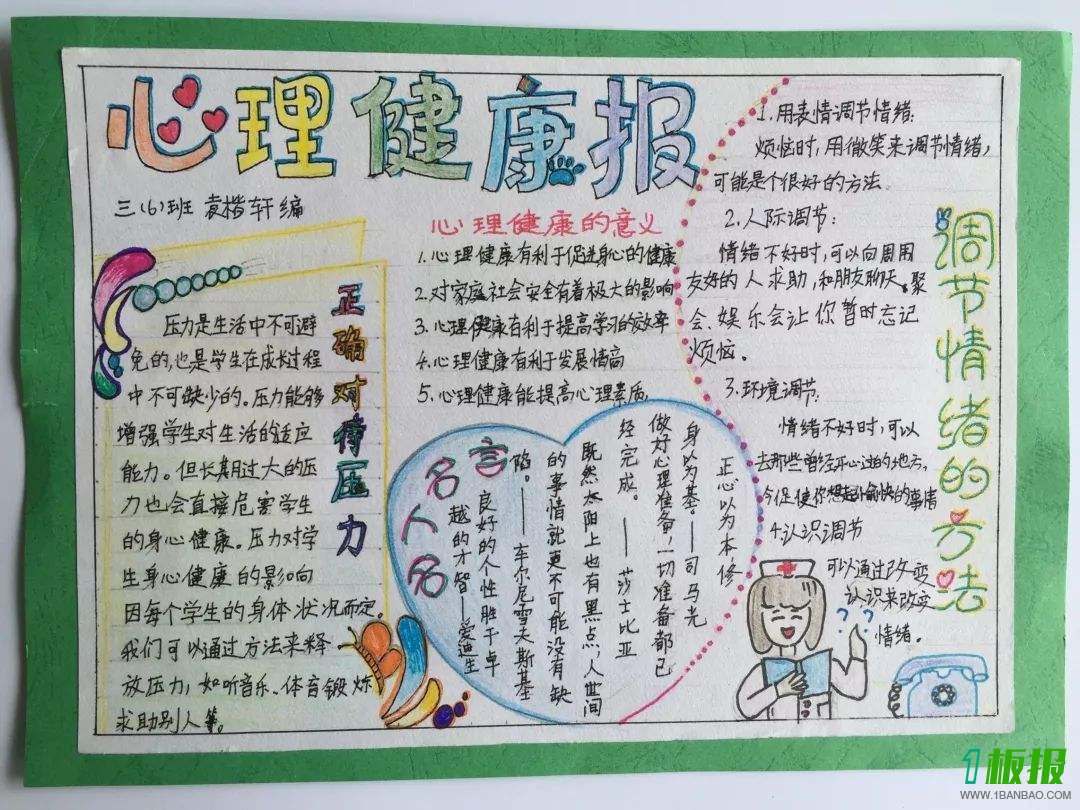 心理健康报
三(6)班 袁楷轩 编
正确对待压力
压力是生活中不可避
免的,也是学生在成长过程
中不可缺少的。压力能够
增强学生对生活的适应
能力。但长期过大的压
力也会直接危害学生
的身心健康。压力对学
生身心健康的影响
因每个学生的身体状况而定。
我们可以通过方法来释
放压力,如听音乐、体育锻炼
求助别人等。
心理健康的意义
1.心理健康有利于促进身心的健康
2.对家庭社会安全有着极大的影响
3.心理健康有利于提高学习的效率
4.心理健康有利于发展情商
5.心理健康能提高心理素质
名人名言
正心以为本修
身以为基。——司马光
做好心理准备,一切准备都已
经完成。——莎士比亚
既然太阳上也有黑点,人世间
的事情就更不可能没有缺
陷。——车尔尼雪夫斯基
良好的个性胜于卓
越的才智——爱迪生
调节情绪的方法
1.用表情调节情绪:
烦恼时,用微笑来调节情绪,
可能是个很好的方法。
2.人际调节:
情绪不好时,可以向周用
友好的人求助,和朋友聊天、聚
会、娱乐会让你暂时忘记
烦恼。
3.环境调节:
情绪不好时,可以
去那些曾经开心过的地方,
会促使你想起愉快的事情
4.认识调节
可以通过改变
认识来改变
情绪。
? ?
1板报
WWW.1BANBAO.COM